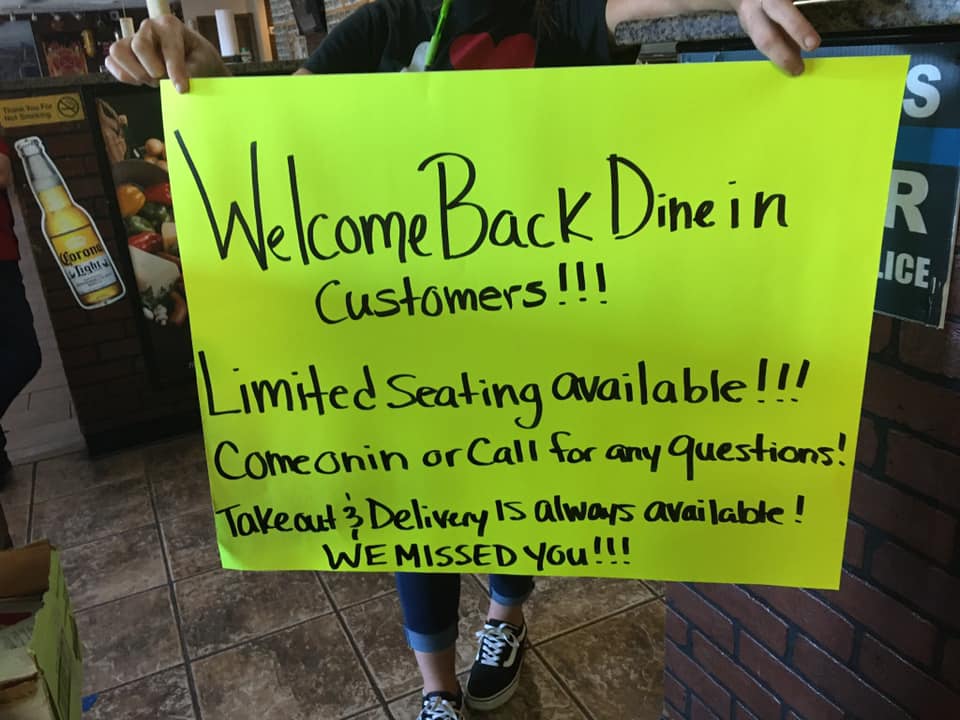 Thank You For
Not Smoking
Corona
Light
Welcome Back Dine in
Customers!!!
Limited Seating available!!!
Come on in or Call for any questions!
Takeout & Delivery Is always available!
WE MISSED YOU!!!
S
R
LICE